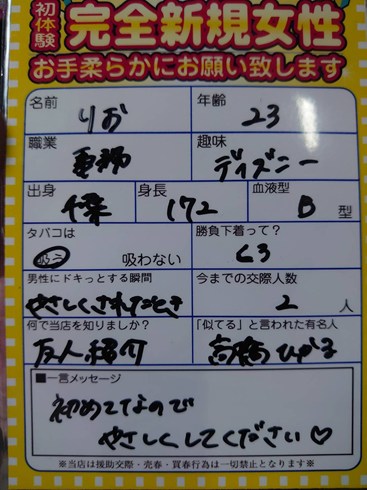 初体験
完全新規女性
お手柔らかにお願い致します
名前 りお 年齢 23
職業 事務 趣味 ディズニー
出身 千葉 身長 172 血液型 B 型
タバコは 吸う 吸わない 勝負下着って? くろ
男性にドキっとする瞬間 やさしくされたとき 今までの交際人数 2 人
何で当店を知りましたか? 友人紹介 「似てる」と言われた有名人 高橋ひかる
■一言メッセージ
初めてなので
やさしくしてください♡
※当店は援助交際・売春・買春行為は一切禁止となります※